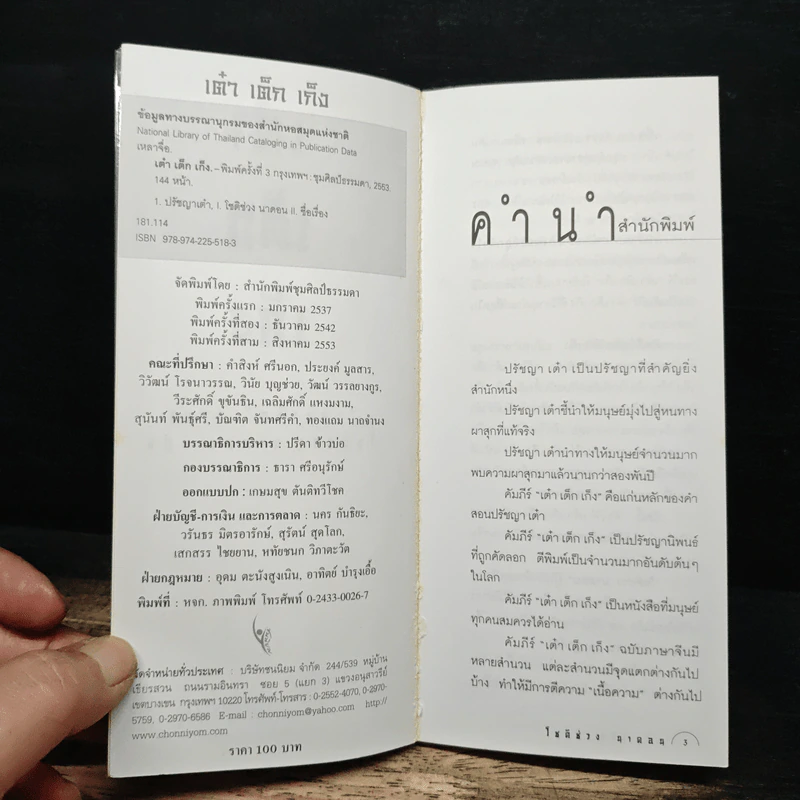 เต๋า เต็ก เก็ง
ข้อมูลทางบรรณานุกรมของสำนักหอสมุดแห่งชาติ
National Library of Thailand Cataloging in Publication Data
เหลาจื่อ.
เต๋า เต็ก เก็ง.-พิมพ์ครั้งที่ 3 กรุงเทพฯ : ชุมศิลป์ธรรมดา, 2553.
144 หน้า.
1. ปรัชญาเต๋า, I. โชติช่วง นาดอน II. ชื่อเรื่อง
181.114
ISBN 978-974-225-518-3
จัดพิมพ์โดย : สำนักพิมพ์ชุมศิลป์ธรรมดา
พิมพ์ครั้งแรก : มกราคม 2537
พิมพ์ครั้งที่สอง : ธันวาคม 2542
พิมพ์ครั้งที่สาม : สิงหาคม 2553
คณะที่ปรึกษา : คำสิงห์ ศรีนอก, ประยงค์ มูลสาร,
วิวัฒน์ โรจนาวรรณ, วินัย บุญช่วย, วัฒน์ วรรลยางกูร,
วีระศักดิ์ ขุขันธิน, เฉลิมศักดิ์ แหงมงาม,
สุนันท์ พันธุ์ศรี, บัณฑิต จันทศรีคำ, ทองแถม นาถจำนง
บรรณาธิการบริหาร : ปรีดา ข้าวบ่อ
กองบรรณาธิการ : ธารา ศรีอนุรักษ์
ออกแบบปก : เกษมสุข ตันติทวีโชค
ฝ่ายบัญชี-การเงิน และการตลาด : นคร กันธิยะ,
วรันธร มิตรอารักษ์, สุรัตน์ สุดโลก,
เสกสรร ไชยยาน, หทัยชนก วิภาตะวัต
ฝ่ายกฎหมาย : อุดม ตะนังสูงเนิน, อาทิตย์ บำรุงเอื้อ
พิมพ์ที่ : หจก. ภาพพิมพ์ โทรศัพท์ 0-2433-0026-7
จัดจำหน่ายทั่วประเทศ : บริษัทชนนิยม จำกัด 244/539 หมู่บ้าน
เธียรสวน ถนนรามอินทรา ซอย 5 (แยก 3) แขวงอนุสาวรีย์
เขตบางเขน กรุงเทพฯ 10220 โทรศัพท์-โทรสาร : 0-2552-4070, 0-2970-
5759, 0-2970-6586 E-mail : chonniyom@yahoo.com http://
www.chonniyom.com
ราคา 100 บาท
คำนำ สำนักพิมพ์
ปรัชญา เต๋า เป็นปรัชญาที่สำคัญยิ่ง
สำนักหนึ่ง
ปรัชญา เต๋าชี้นำให้มนุษย์มุ่งไปสู่หนทาง
ผาสุกที่แท้จริง
ปรัชญา เต๋านำทางให้มนุษย์จำนวนมาก
พบความผาสุกมาแล้วนานกว่าสองพันปี
คัมภีร์ "เต๋า เต็ก เก็ง" คือแก่นหลักของคำ
สอนปรัชญา เต๋า
คัมภีร์ "เต๋า เต็ก เก็ง" เป็นปรัชญานิพนธ์
ที่ถูกคัดลอก ตีพิมพ์เป็นจำนวนมากอันดับต้นๆ
ในโลก
คัมภีร์ "เต๋า เต็ก เก็ง" เป็นหนังสือที่มนุษย์
ทุกคนสมควรได้อ่าน
คัมภีร์ "เต๋า เต็ก เก็ง" ฉบับภาษาจีนมี
หลายสำนวน แต่ละสำนวนมีจุดแตกต่างกันไป
บ้าง ทำให้มีการตีความ "เนื้อความ" ต่างกันไป
โชติช่วง นาดอน 3